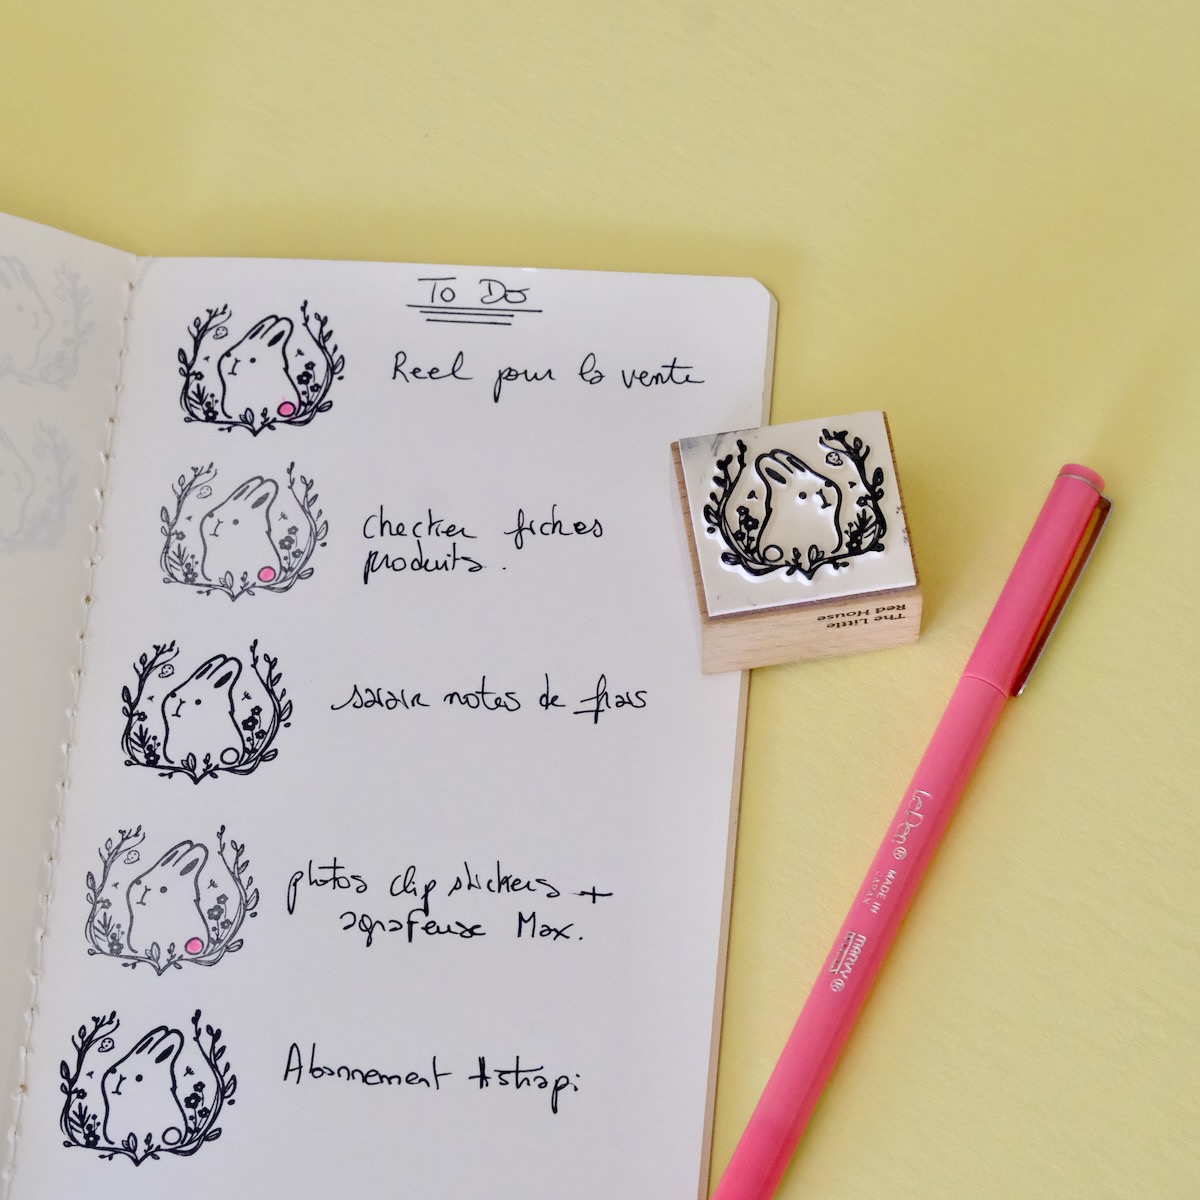 To Do
Reel pour la vente
checker fiches
produits.
saisir notes de frais
photos clip stickers +
agrafeuse Max.
Abonnement Astrapi
The Little
Red House
LePen® MADE IN
JAPAN
marvy®